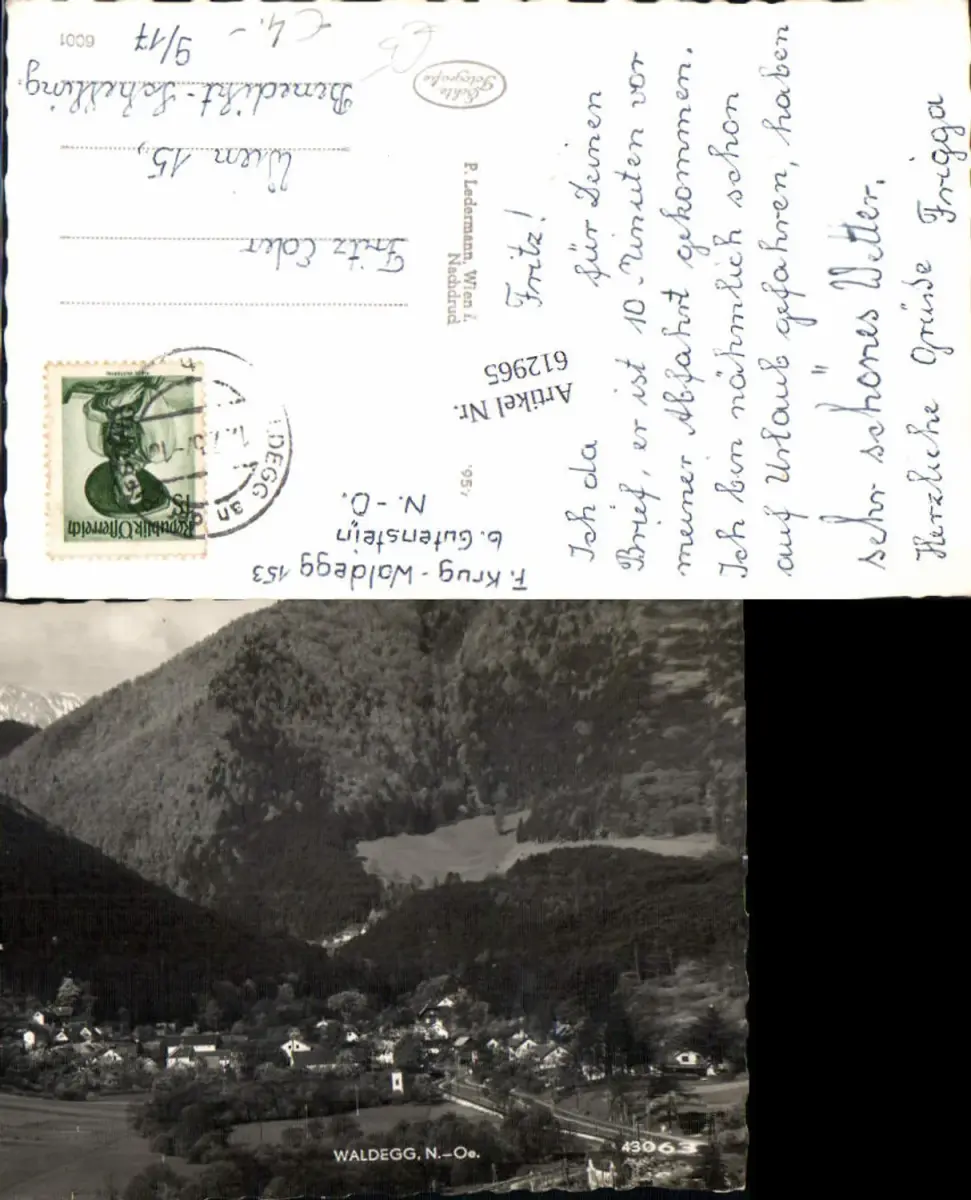 Fritz!
Ich da für Deinen
Brief, er ist 10 Minuten vor
meiner Abfahrt gekommen.
Ich bin nähmlich schon
auf Urlaub gefahren, haben
sehr schönes Wetter.
Herzliche Grüße Frigga
F. Krug - Waldegg 153
b. Gutenstein
N.-Ö.
Artikel Nr.
612965
Echte
Fotografie
P. Ledermann, Wien I.
Nachdruck
Republik Österreich
1S
DEGG an
Fritz Eder
Wien 15,
Benedikt-Schelling.
9/17
6001
€ 4.-
WALDEGG, N.-Oe.
43063